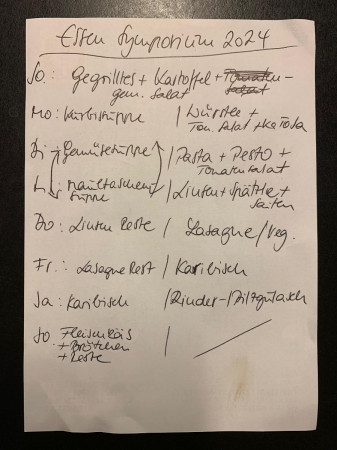 Essen Symposium 2024
So.: Gegrilltes + Kartoffel + Tomaten-
gem. Salat salat
Mo: Kürbissuppe / Würstle +
Tom. Salat + KaToSa
Di Gemüsesuppe / Pasta + Pesto +
Tomatensalat
Mi Maultaschen / Linsen + Spätzle +
suppe Saiten
Do: Linsen Reste / Lasagne / Veg.
Fr.: Lasagne Rest / Karibisch
Sa: Karibisch / Rinder-/Pilzgulasch
So: Fleischkäs /
+ Brötchen
+ Reste